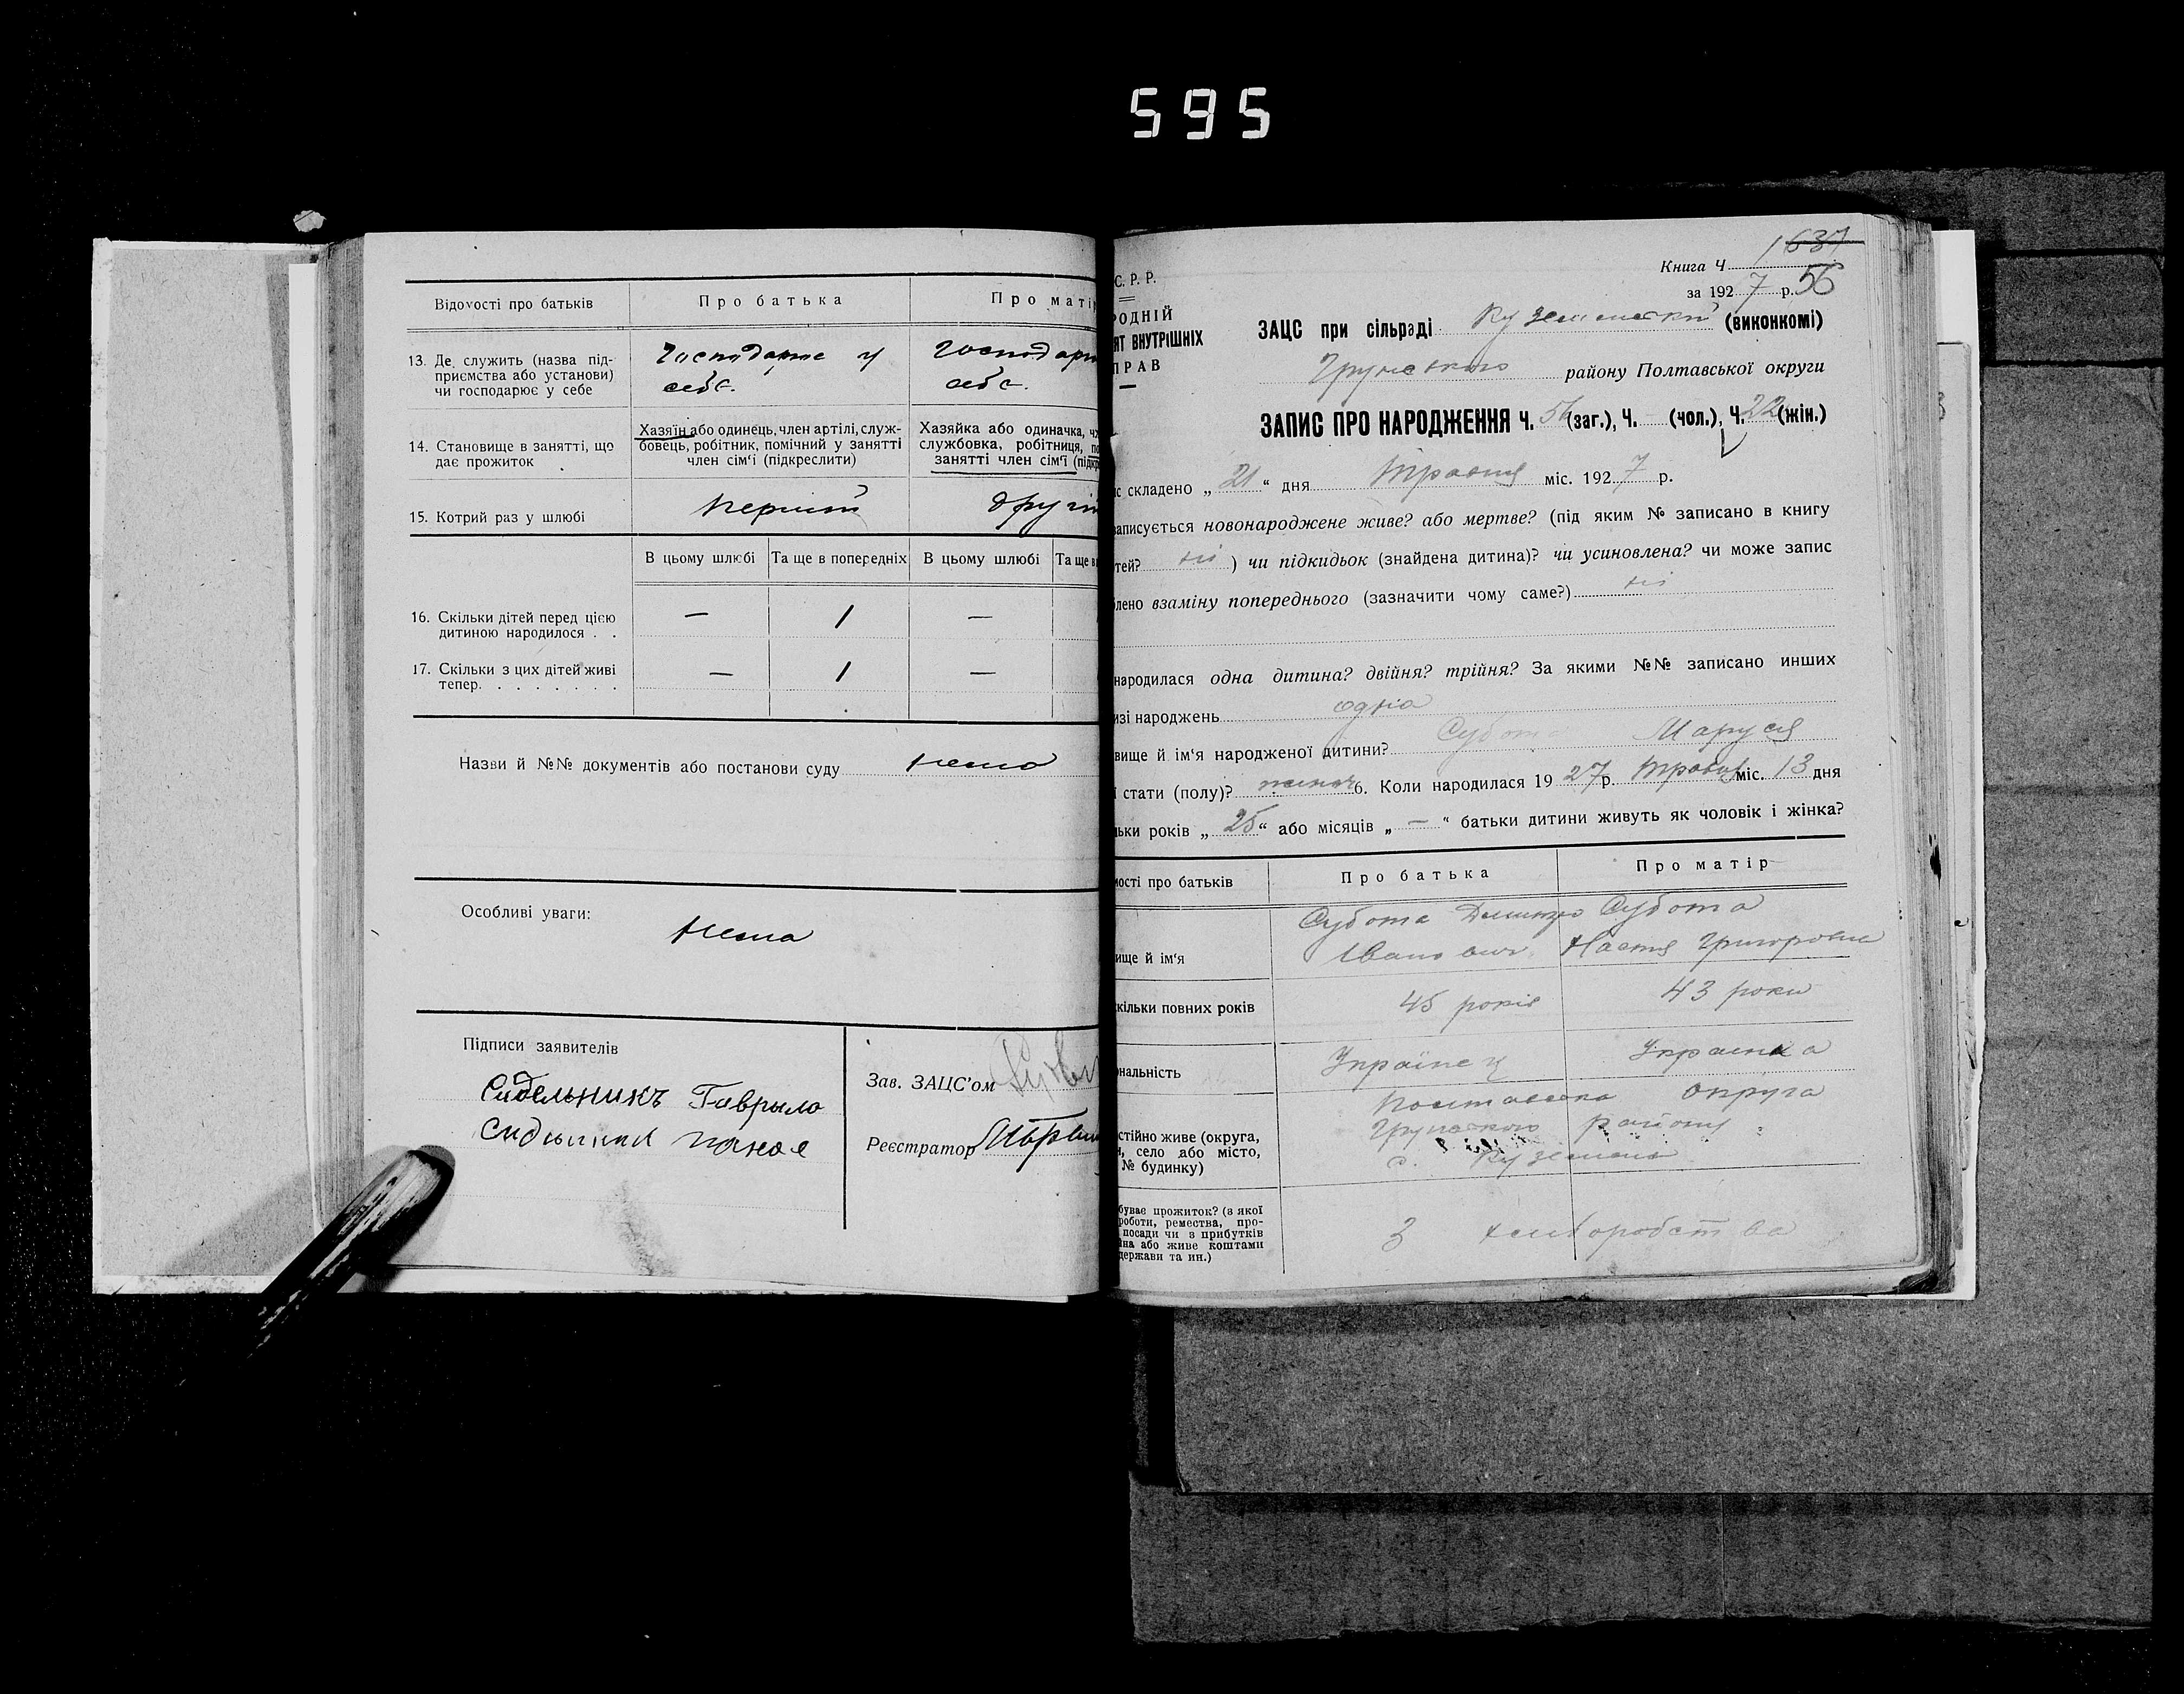 595
Відомості про батьків
Про батька
Про матір
13. Де служить (назва під-
приємства або установи)
чи господарює у себе
Господарює у
себе.
господарю
себе.
14. Становище в занятті, що
дає прожиток
Хазяїн або одинець, член артілі, служ-
бовець, робітник, помічний у занятті
член сім'ї (підкреслити)
Хазяйка або одиначка, чл
службовка, робітниця, по
занятті член сім'ї (підкр
15. Котрий раз у шлюбі
Перший
другий
В цьому шлюбі
Та ще в попередніх
В цьому шлюбі
Та ще в
16. Скільки дітей перед цією
дитиною народилося . .
—
1
—
17. Скільки з цих дітей живі
тепер. . . . . . . .
—
1
—
Назви й №№ документів або постанови суду нема
Особливі уваги:
нема
Підписи заявителів
Сидельникъ Гаврыло
Зав. ЗАЦС'ом
Реєстратор
С. Р. Р.
РОДНІЙ
ЯТ ВНУТРІШНІХ
ПРАВ
Книга Ч 1 637
за 1927 р. 56
ЗАЦС при сільраді Куземенській (виконкомі)
Грунського району Полтавської округи
ЗАПИС ПРО НАРОДЖЕННЯ Ч. 56 (заг.), Ч. — (чол.), Ч. 22 (жін.)
ис складено „ 21 “ дня Травня міс. 1927 р.
записується новонароджене живе? або мертве? (під яким № записано в книгу
тей? ні ) чи підкидьок (знайдена дитина)? чи усиновлена? чи може запис
лено взаміну попереднього (зазначити чому саме?) ні
народилася одна дитина? двійня? трійня? За якими №№ записано инших
изі народжень одна
вище й ім'я народженої дитини? Субота Маруся
ї стати (полу)? жіноч 6. Коли народилася 1927 р. Травня міс. 13 дня
льки років „ 25 “ або місяців „ — “ батьки дитини живуть як чоловік і жінка?
мості про батьків
Про батька
Про матір
вище й ім'я
Субота Дмитро
Іванович
Субота
Настя Григоровна
скільки повних років
45 років
43 роки
нальність
Українец
Украинка
стійно живе (округа,
н, село або місто,
№ будинку)
Полтавська округа
Грунського району
с. Куземени
буває прожиток? (з якої
роботи, ремества, про-
посади чи з прибутків
їна або живе коштами
держави та ин.)
З хліборобства